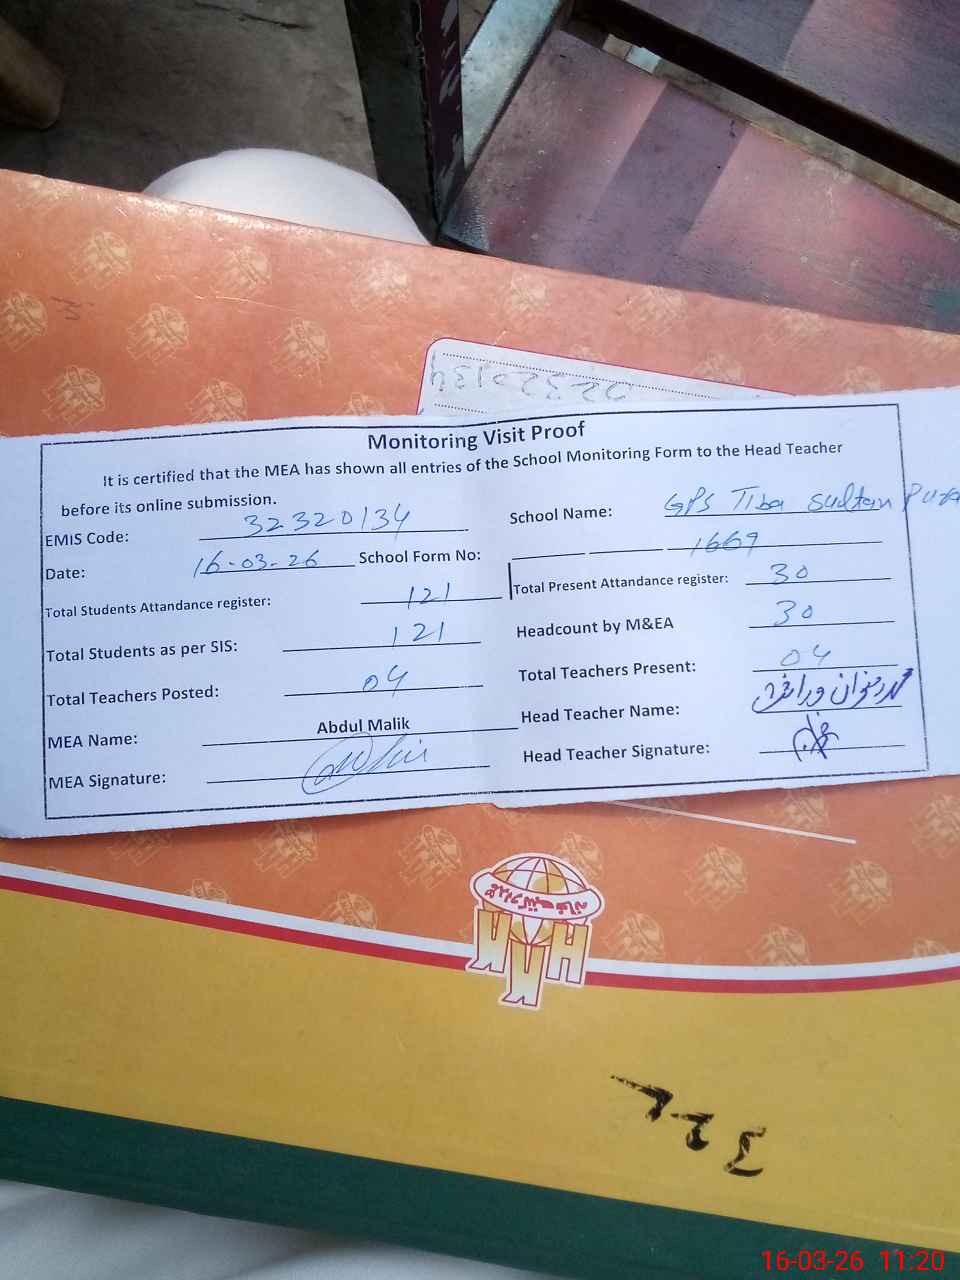 Monitoring Visit Proof
It is certified that the MEA has shown all entries of the School Monitoring Form to the Head Teacher
before its online submission.
EMIS Code: 32320134 School Name: GPS Tiba Sultan Pura
Date: 16-03-26 School Form No: 1669
Total Students Attandance register: 121 Total Present Attandance register: 30
Total Students as per SIS: 121 Headcount by M&EA 30
Total Teachers Posted: 04 Total Teachers Present: 04
MEA Name: Abdul Malik Head Teacher Name: محمد رضوان
MEA Signature: Head Teacher Signature:
322
16-03-26 11:20